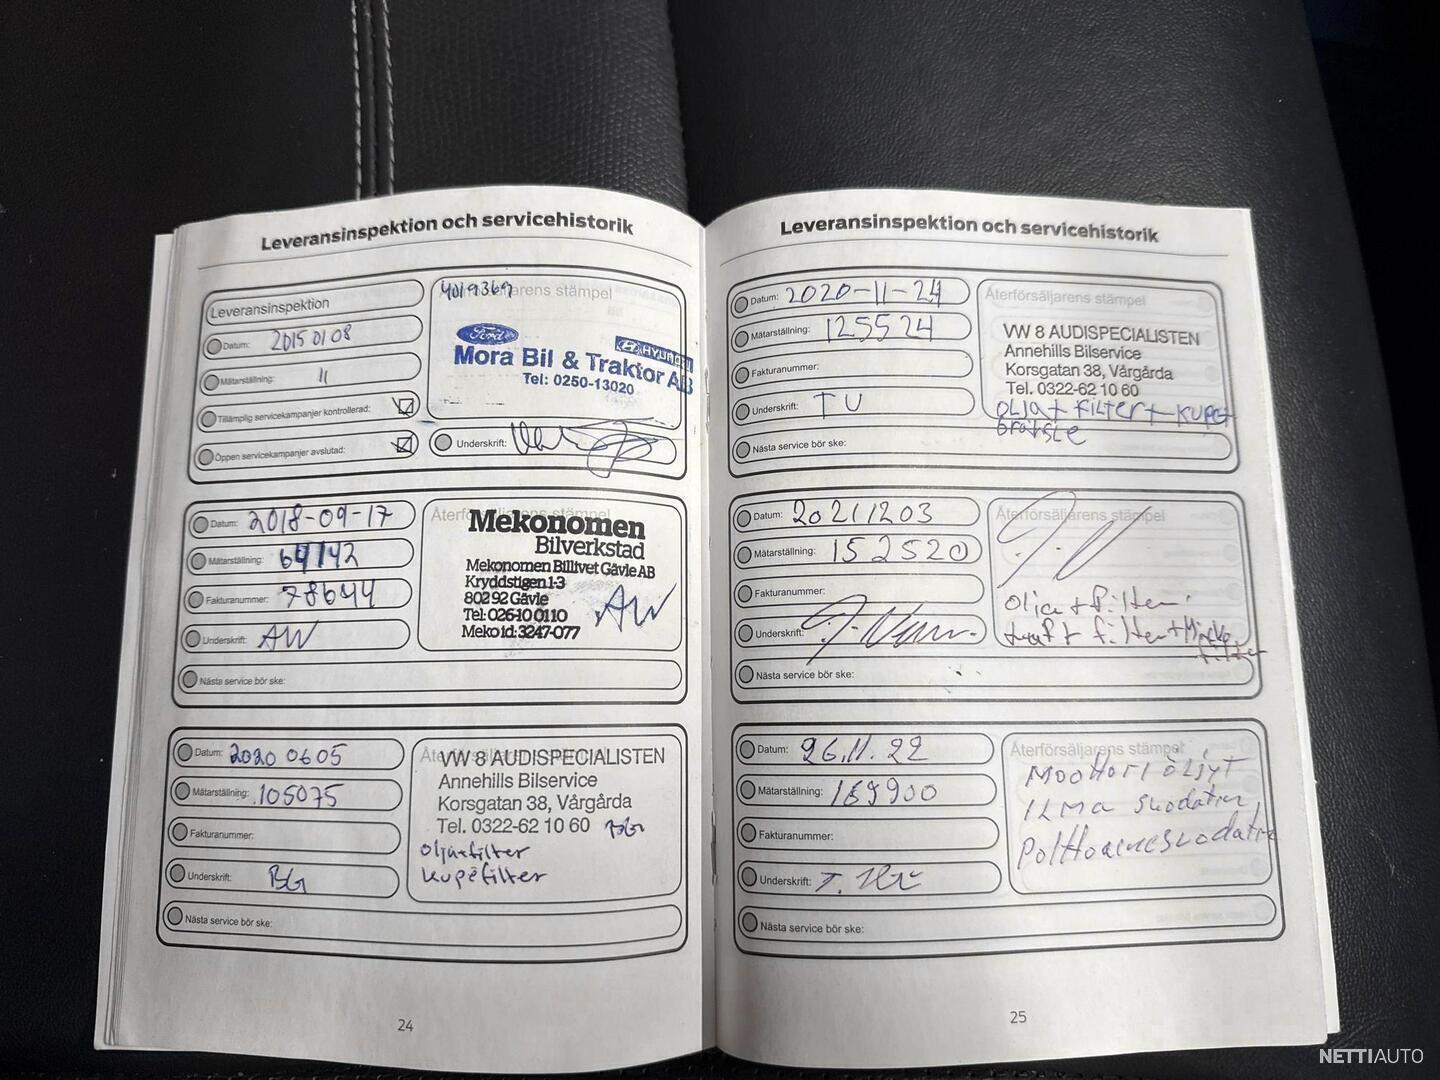 Leveransinspektion och servicehistorik
Leveransinspektion
Datum: 20150108
Mätarställning: 11
Tillämplig servicekampanjer kontrollerad:
Öppen servicekampanjer avslutad:
4019369
Återförsäljarens stämpel
Ford
HYUNDAI
Mora Bil & Traktor AB
Tel: 0250-13020
Underskrift:
Datum: 2018-09-17
Mätarställning: 64142
Fakturanummer: 78644
Underskrift: AW
Nästa service bör ske:
Återförsäljarens stämpel
Mekonomen
Bilverkstad
Mekonomen Billivet Gävle AB
Kryddstigen 1-3
802 92 Gävle
Tel: 026-10 01 10
Meko id: 3247-077
AW
Datum: 2020 06 05
Mätarställning: 105075
Fakturanummer:
Underskrift: BG
Nästa service bör ske:
Återförsäljarens stämpel
VW & AUDISPECIALISTEN
Annehills Bilservice
Korsgatan 38, Vårgårda
Tel. 0322-62 10 60
olja+filter
kupéfilter
24
Leveransinspektion och servicehistorik
Datum: 2020-11-24
Mätarställning: 125524
Fakturanummer:
Underskrift: TU
Nästa service bör ske:
Återförsäljarens stämpel
VW 8 AUDISPECIALISTEN
Annehills Bilservice
Korsgatan 38, Vårgårda
Tel. 0322-62 10 60
OLJA+FILTER+KUPE+
Datum: 20211203
Mätarställning: 152520
Fakturanummer:
Underskrift:
Nästa service bör ske:
Återförsäljarens stämpel
olja+filter
luft filter+
filter
Datum: 26.11.22
Mätarställning: 169900
Fakturanummer:
Underskrift:
Nästa service bör ske:
Återförsäljarens stämpel
Moottori öljyt
ILMA suodatin
Polttoainesuodatin
25
NETTIAUTO